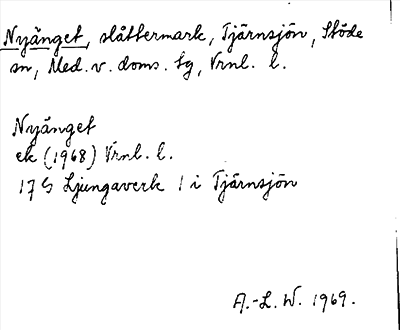 Nyänget, slåttermark, Tjärnsjön, Stöde
sn, Med. v. doms. tg, Vrnl. l.
Nyänget
ek (1968) Vrnl. l.
17 G Ljungaverk 1 i Tjärnsjön
A.-L. W. 1969.